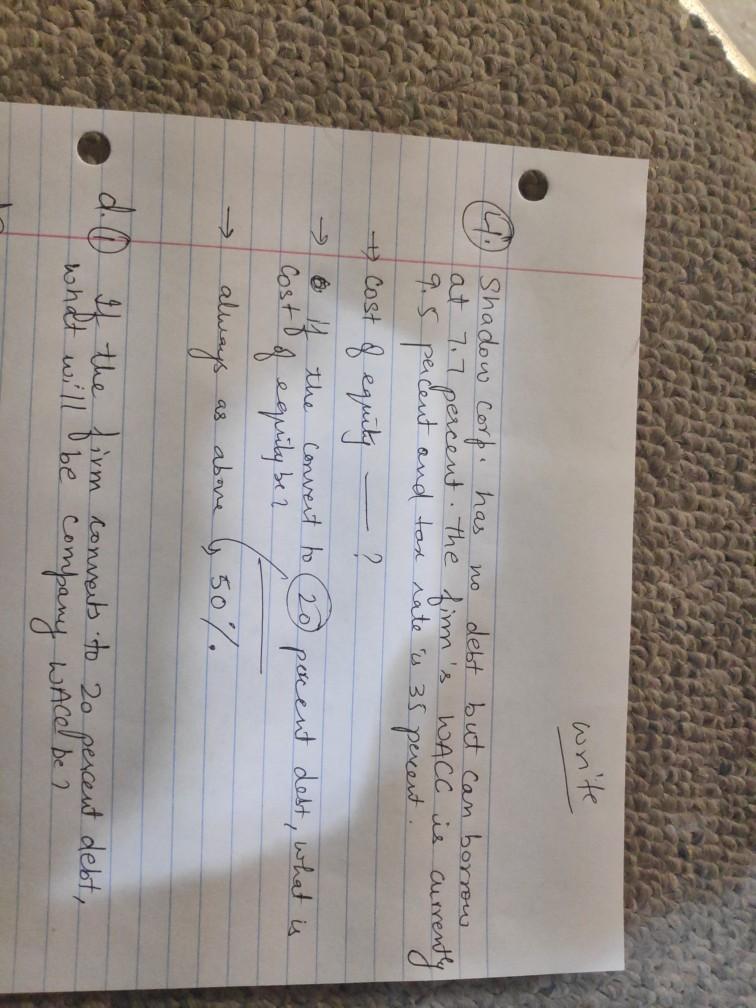 write
4. Shadow corp. has no debt but can borrow
at 7.7 percent. the firm's WACC is currently
9.5 percent and tax rate is 35 percent.
→ cost of equity ___ ?
→ If the convert to 20 percent debt, what is
cost of equity be?
→ always as above 50%.
d. 1 If the firm converts to 20 percent debt,
what will be company WACC be?